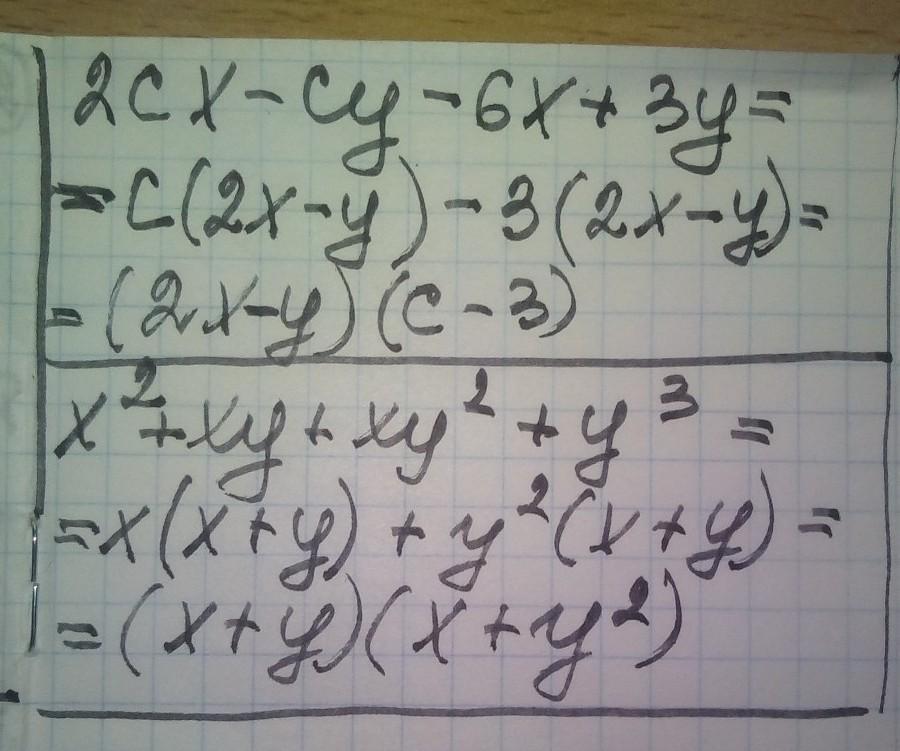 2cx - cy - 6x + 3y =
= c(2x - y) - 3(2x - y) =
= (2x - y)(c - 3)
x² + xy + xy² + y³ =
= x(x + y) + y²(x + y) =
= (x + y)(x + y²)